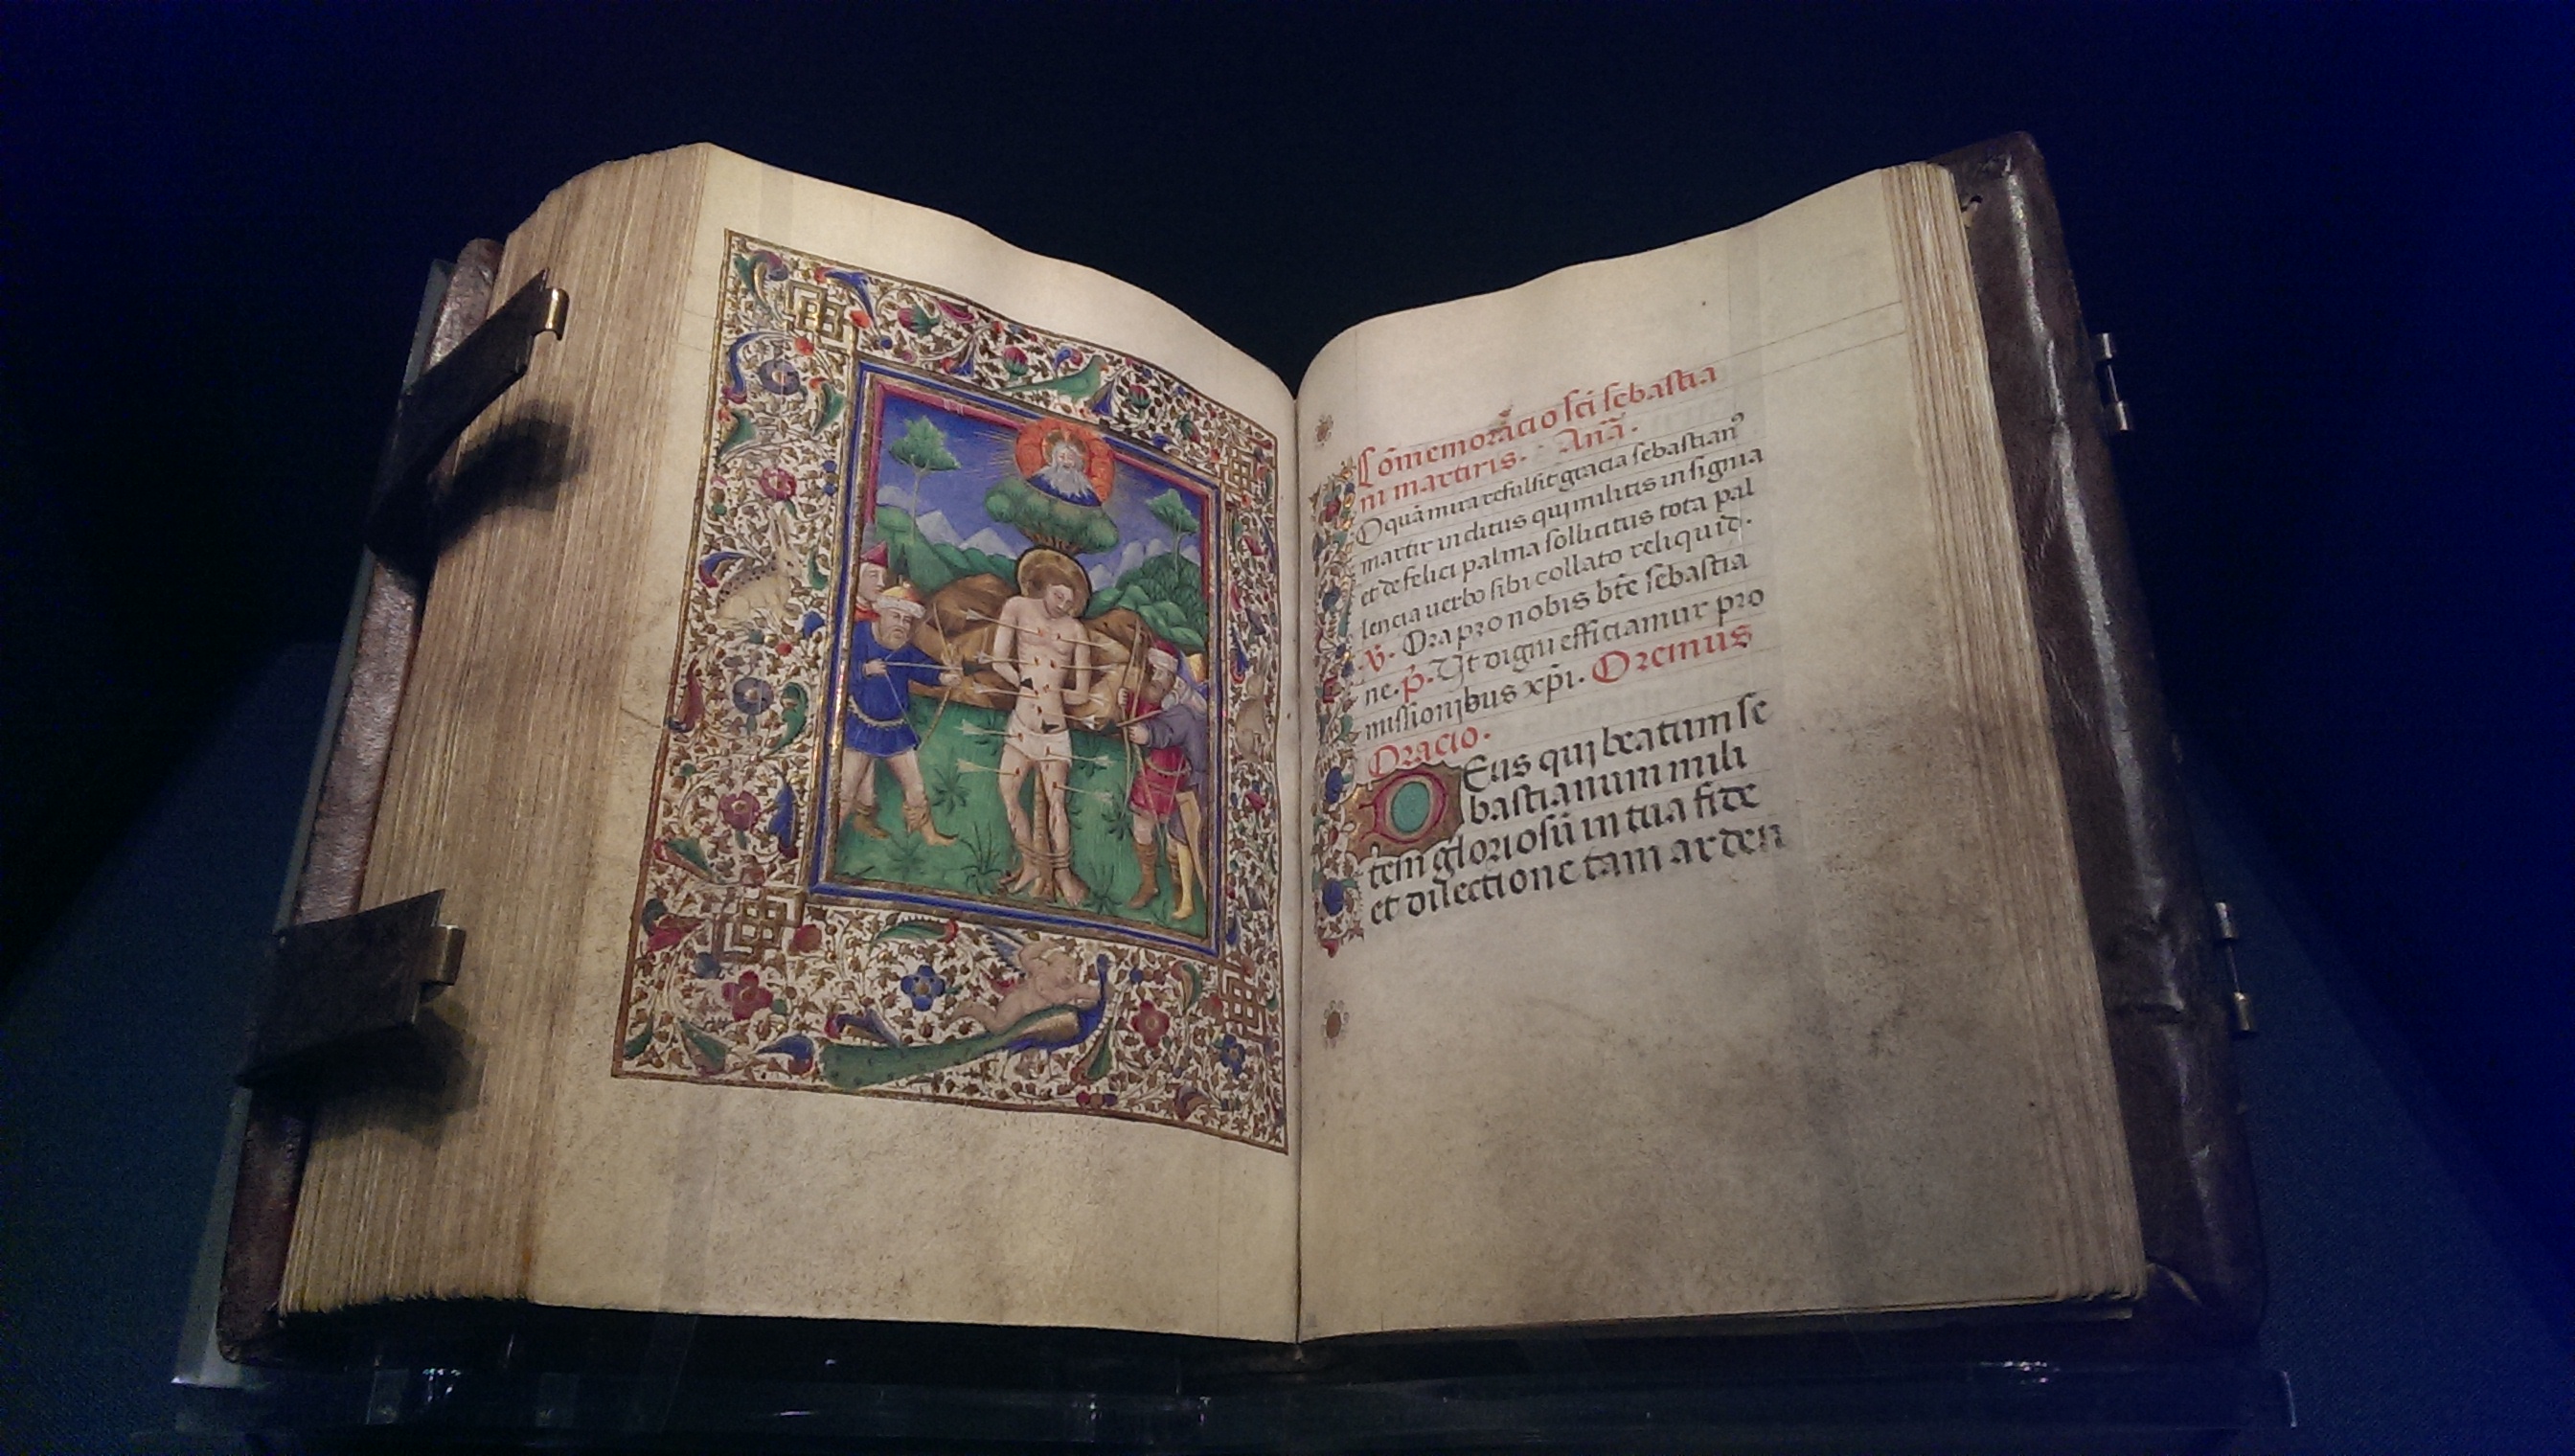 Cōmemoracio sci sebastia
ni martiris. Anā.
O quā mira refulsit gracia sebastianꝰ
martir inclitus qui militis insignia
et de felici palma sollicitus tota pal
lencia uerbo sibi collato reliquid.
℣. Ora pro nobis bt̄e sebastia
ne. ꝶ. Ut digni efficiamur pro
missionibus xp̄i. Oremus
Oracio.
DEus qui beatum se
bastianum mili
tem gloriosū in tua fide
et dilectione tam arden